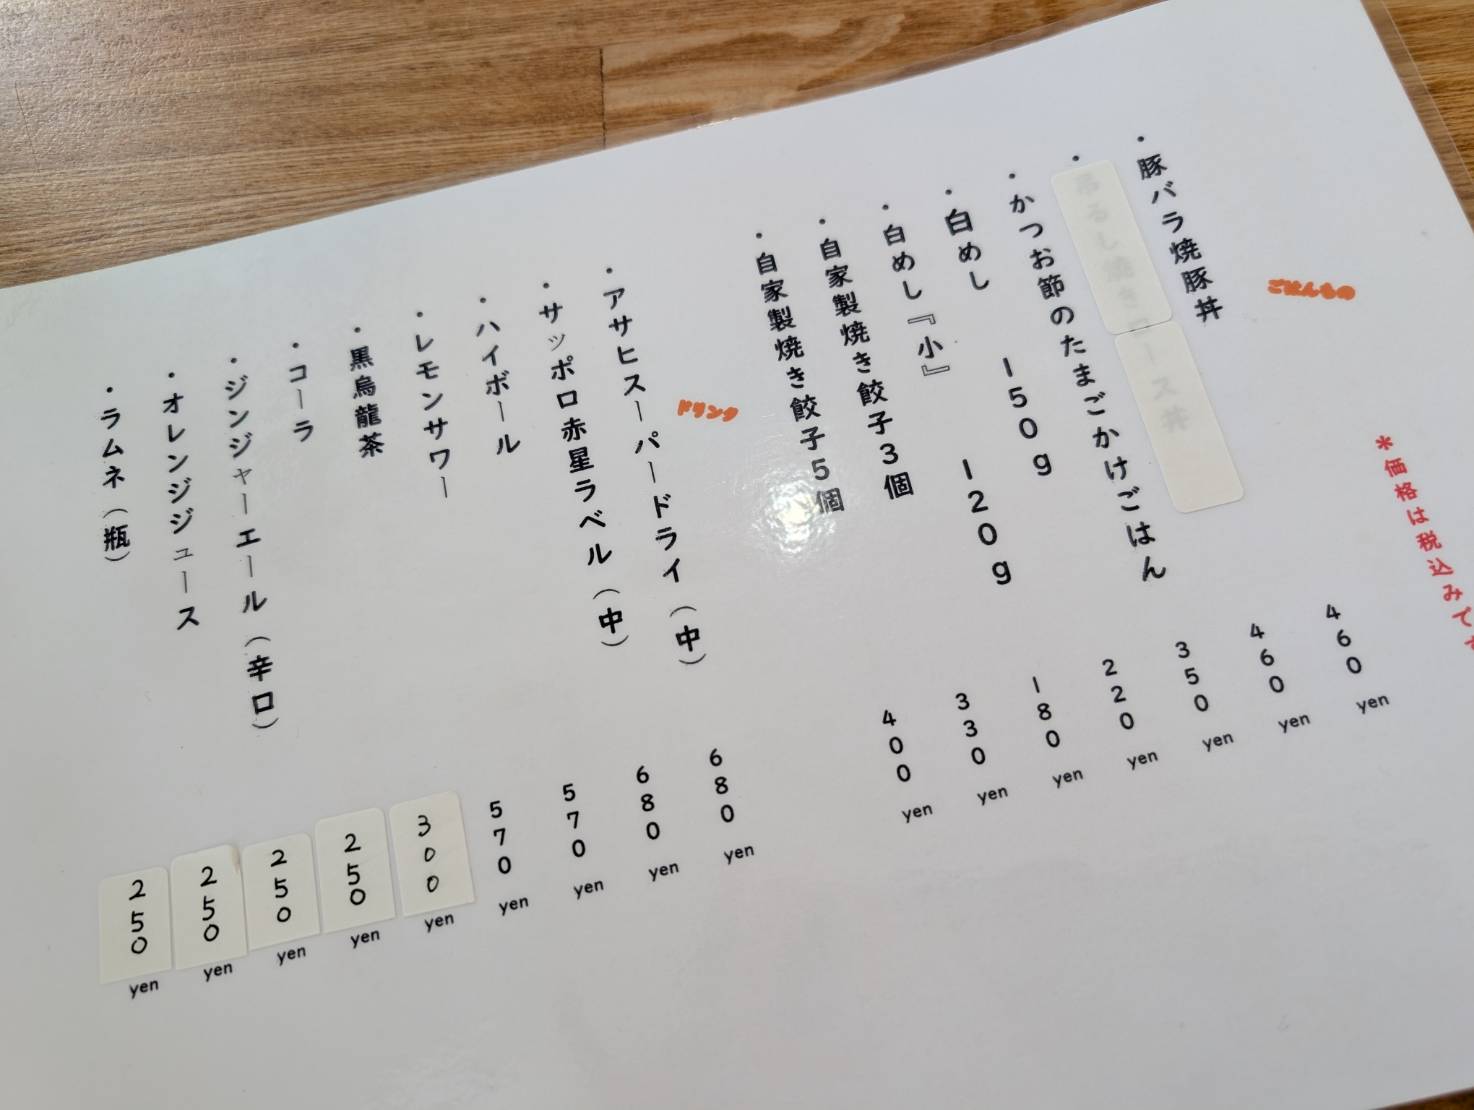 *価格は税込みです
ごはんもの
・豚バラ焼豚丼 460 yen
・吊るし焼きロース丼 460 yen
・かつお節のたまごかけごはん 350 yen
・白めし 150g 220 yen
・白めし『小』 120g 180 yen
・自家製焼き餃子3個 330 yen
・自家製焼き餃子5個 400 yen
ドリンク
・アサヒスーパードライ(中) 680 yen
・サッポロ赤星ラベル(中) 680 yen
・ハイボール 570 yen
・レモンサワー 570 yen
・黒烏龍茶 300 yen
・コーラ 250 yen
・ジンジャーエール(辛口) 250 yen
・オレンジジュース 250 yen
・ラムネ(瓶) 250 yen